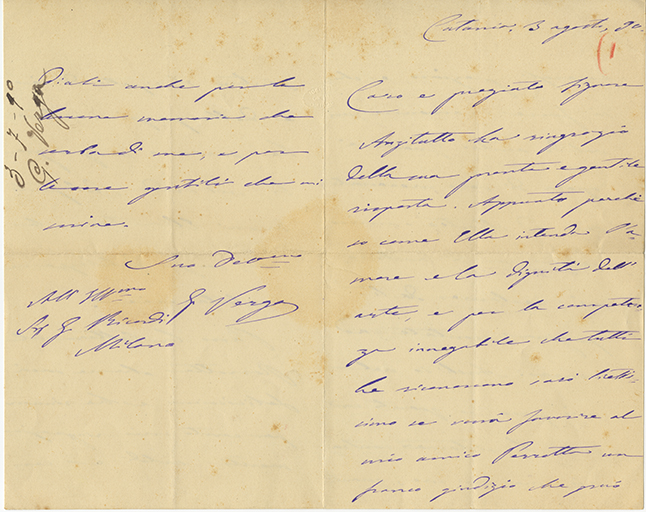 Catania, 3 agosto, 90.
(1
Caro e pregiato Signore
Anzitutto La ringrazio
della sua pronta e gentile
risposta. Appunto perchè
so come Ella intenda l'a-
more e la dignità dell'
arte, e per la competen-
za innegabile che tutti
Le riconoscono sarò lietis-
simo se vorrà favorire al
mio amico Perrotta un
franco giudizio che può
anche per la
buona memoria che
serba di me, e per
le cose gentili che mi
scrive.
Suo Devmo
G Verga
All' Illmo
Sig G. Ricordi
Milano
3-7-90
G. Verga